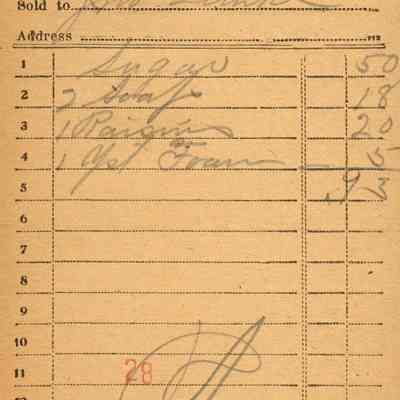 Sold to
Address
1 Sugar 50
2 2 Soap 18
3 1 Raisins 20
4 1 Yst Foam 5
5 .93
6
7
8
9
10
11 28